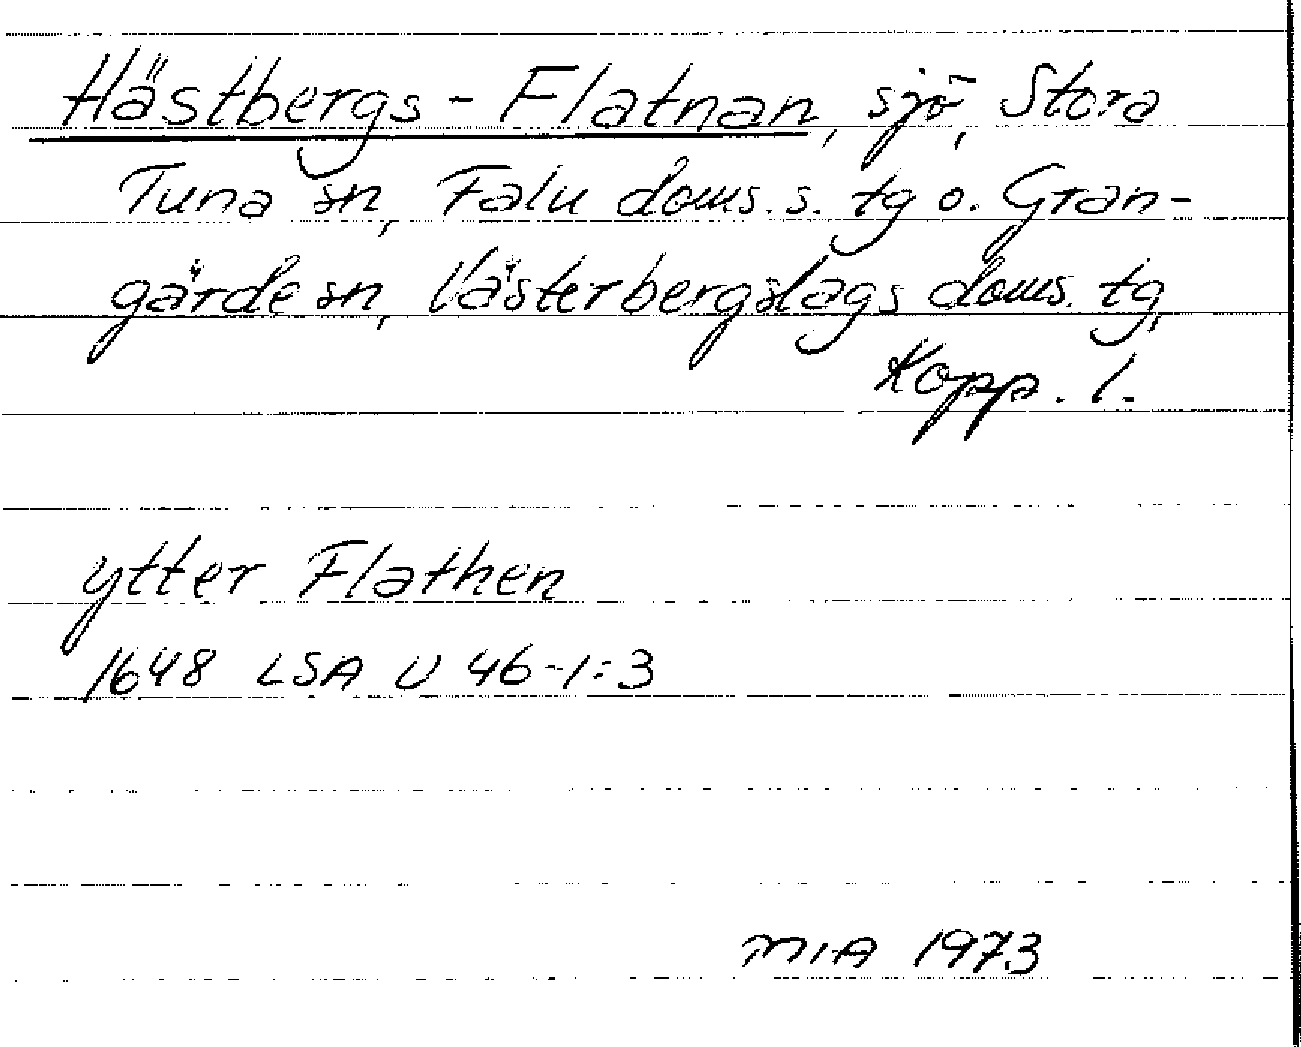 Hästbergs-Flatnan, sjö, Stora
Tuna sn, Falu doms. s. tg o. Gran-
gärde sn, Västerbergslags doms. tg,
Kopp. l.
ytter Flathen
1648 LSA U 46-1:3
MIA 1973